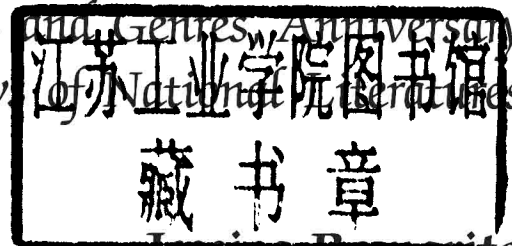 and Genres, Anniversary
江苏工业学院图书馆
of National Literatures
藏书章